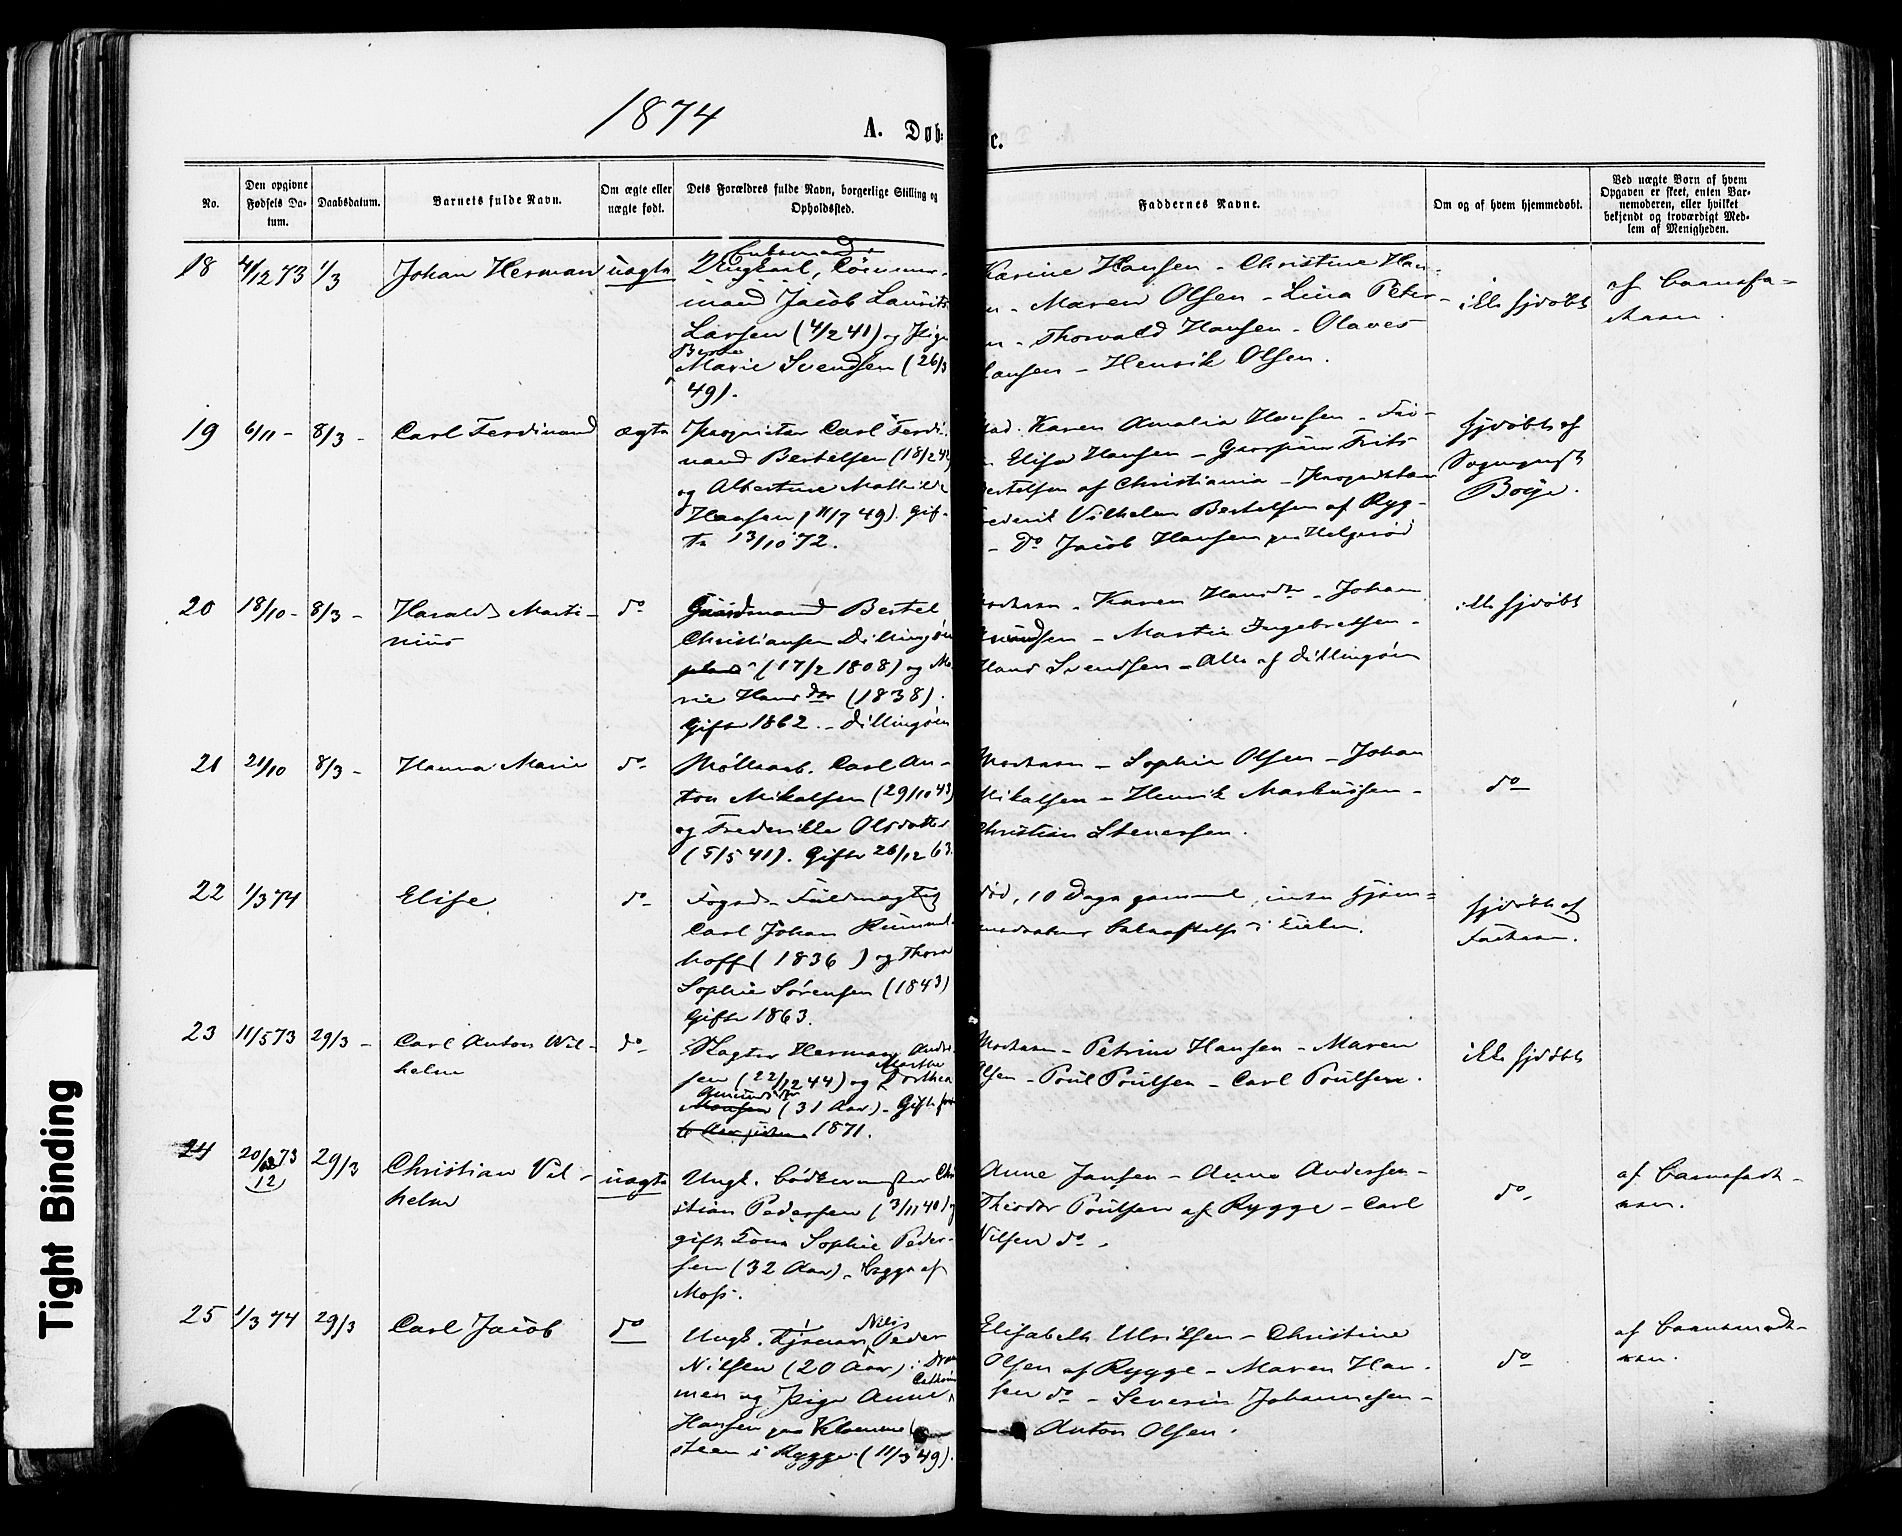 1874
A. Døb:
c.
No.
Den opgivne Fødsels Da-
tum.
Daabsdatum.
Barnets fulde Navn.
Om ægte eller
uægte født.
Dets Forældres fulde Navn, borgerlige Stilling og
Opholdssted.
Faddernes Navne.
Om og af hvem hjemmedøbt.
Ved uægte Børn af hvem
Opgaven er skeet, enten Bar-
nemoderen, eller hvilket
bekjendt og troværdigt Med-
lem af Menigheden.
18 4/12 73 1/3 Johan Herman uægte
Ungkarl,
mand Jacob Laurits
Larsen (4/2 41) og Pige
Marie Svendsen (26/3
49).
Karine Hansen - Christine Han-
n - Maren Olsen - Lina Peter-
n - Thorvald Hansen - Olaves
Hansen - Henrik Olsen.
ikke hjdøbt
af Barnefa-
deren.
19 6/11 - 8/3 - Carl Ferdinand ægte
Proprietær Carl Ferdi-
nand Bertelsen (18/2 4
og Albertine Mathilde
Hansen (11/7 49). Gif-
te 13/10 72.
Mad. Karen Amalia Hansen - Frø-
n Elisa Hansen - Frits
Bertelsen af Christiania - Proprietær
rederik Vilhelm Bertelsen af Ryg-
- do Jacob Hansen paa Helgerød
hjdøbt af
Sogneprest
Boije.
20 18/10 - 8/3 - Harald Marti-
nius
do
Gaardmand Bertel
Christiansen Dillingøen
(17/2 1808) og Ma-
rie Hansdtr (1838).
Gifte 1862. - Dillingøen
Moderen - Karen Hansdtr - Johan
- Martin Ingebretsen -
Hans Svendsen - Alle af Dillingøen
ikke hjdøbt
21 21/10 8/3 - Hanna Marie do
Møllearb. Carl An-
ton Mikalsen (29/10 43)
og Frederikke Olsdatter
(5/5 41). Gifte 26/12 63.
Moderen - Sophie Olsen - Johan
Mikalsen - Henrik Markussen -
Christian Stenersen.
do
22 1/3 74 Elise. do
Fogd-Fuldmægtig
Carl Johan
hoff (1836 ) og Thora
Sophie Sørensen (1843)
Gifte 1863.
død, 10 Dage gammel, inden Hjem-
medaabens Bekræftelse i Kirken.
hjdøbt af
Faderen.
23 11/5 73 29/3 - Carl Anton Wil-
helm
do
Slagter Herman Ander-
sen (22/12 44) og Marthe Dorthea
Amundsdtr
Monsen (31 Aar) - Gifte for
1871.
Moderen - Petrine Hansen - Maren
Olsen - Poul Poulsen - Carl Poulsen.
ikke hjdøbt
24 20/12 73 29/3 Christian Vil-
12
helm
uægte
Ungk. Bødkermester Chri
stian Pedersen (3/11 40) og
gift Kone Sophie Peder-
sen (32 Aar) - begge af
Moss.
Anne Jansen - Anne Andersen -
Theodor Poulsen af Rygge - Carl
Nilsen do.
do
af Barnefade-
ren.
25 1/3 74 29/3 Carl Jacob do
Ungk. Tjener Nilis Peder
Nilsen (20 Aar) i Dram
men og Pige Anne Cathrine
Hansen paa
steen i Rygge (11/3 49).
Elisabeth Ulriksen - Christine
Olsen af Rygge - Maren Han-
sen do - Severin Johannesen -
Anton Olsen.
do
af Barnemode-
ren.
Tight Binding